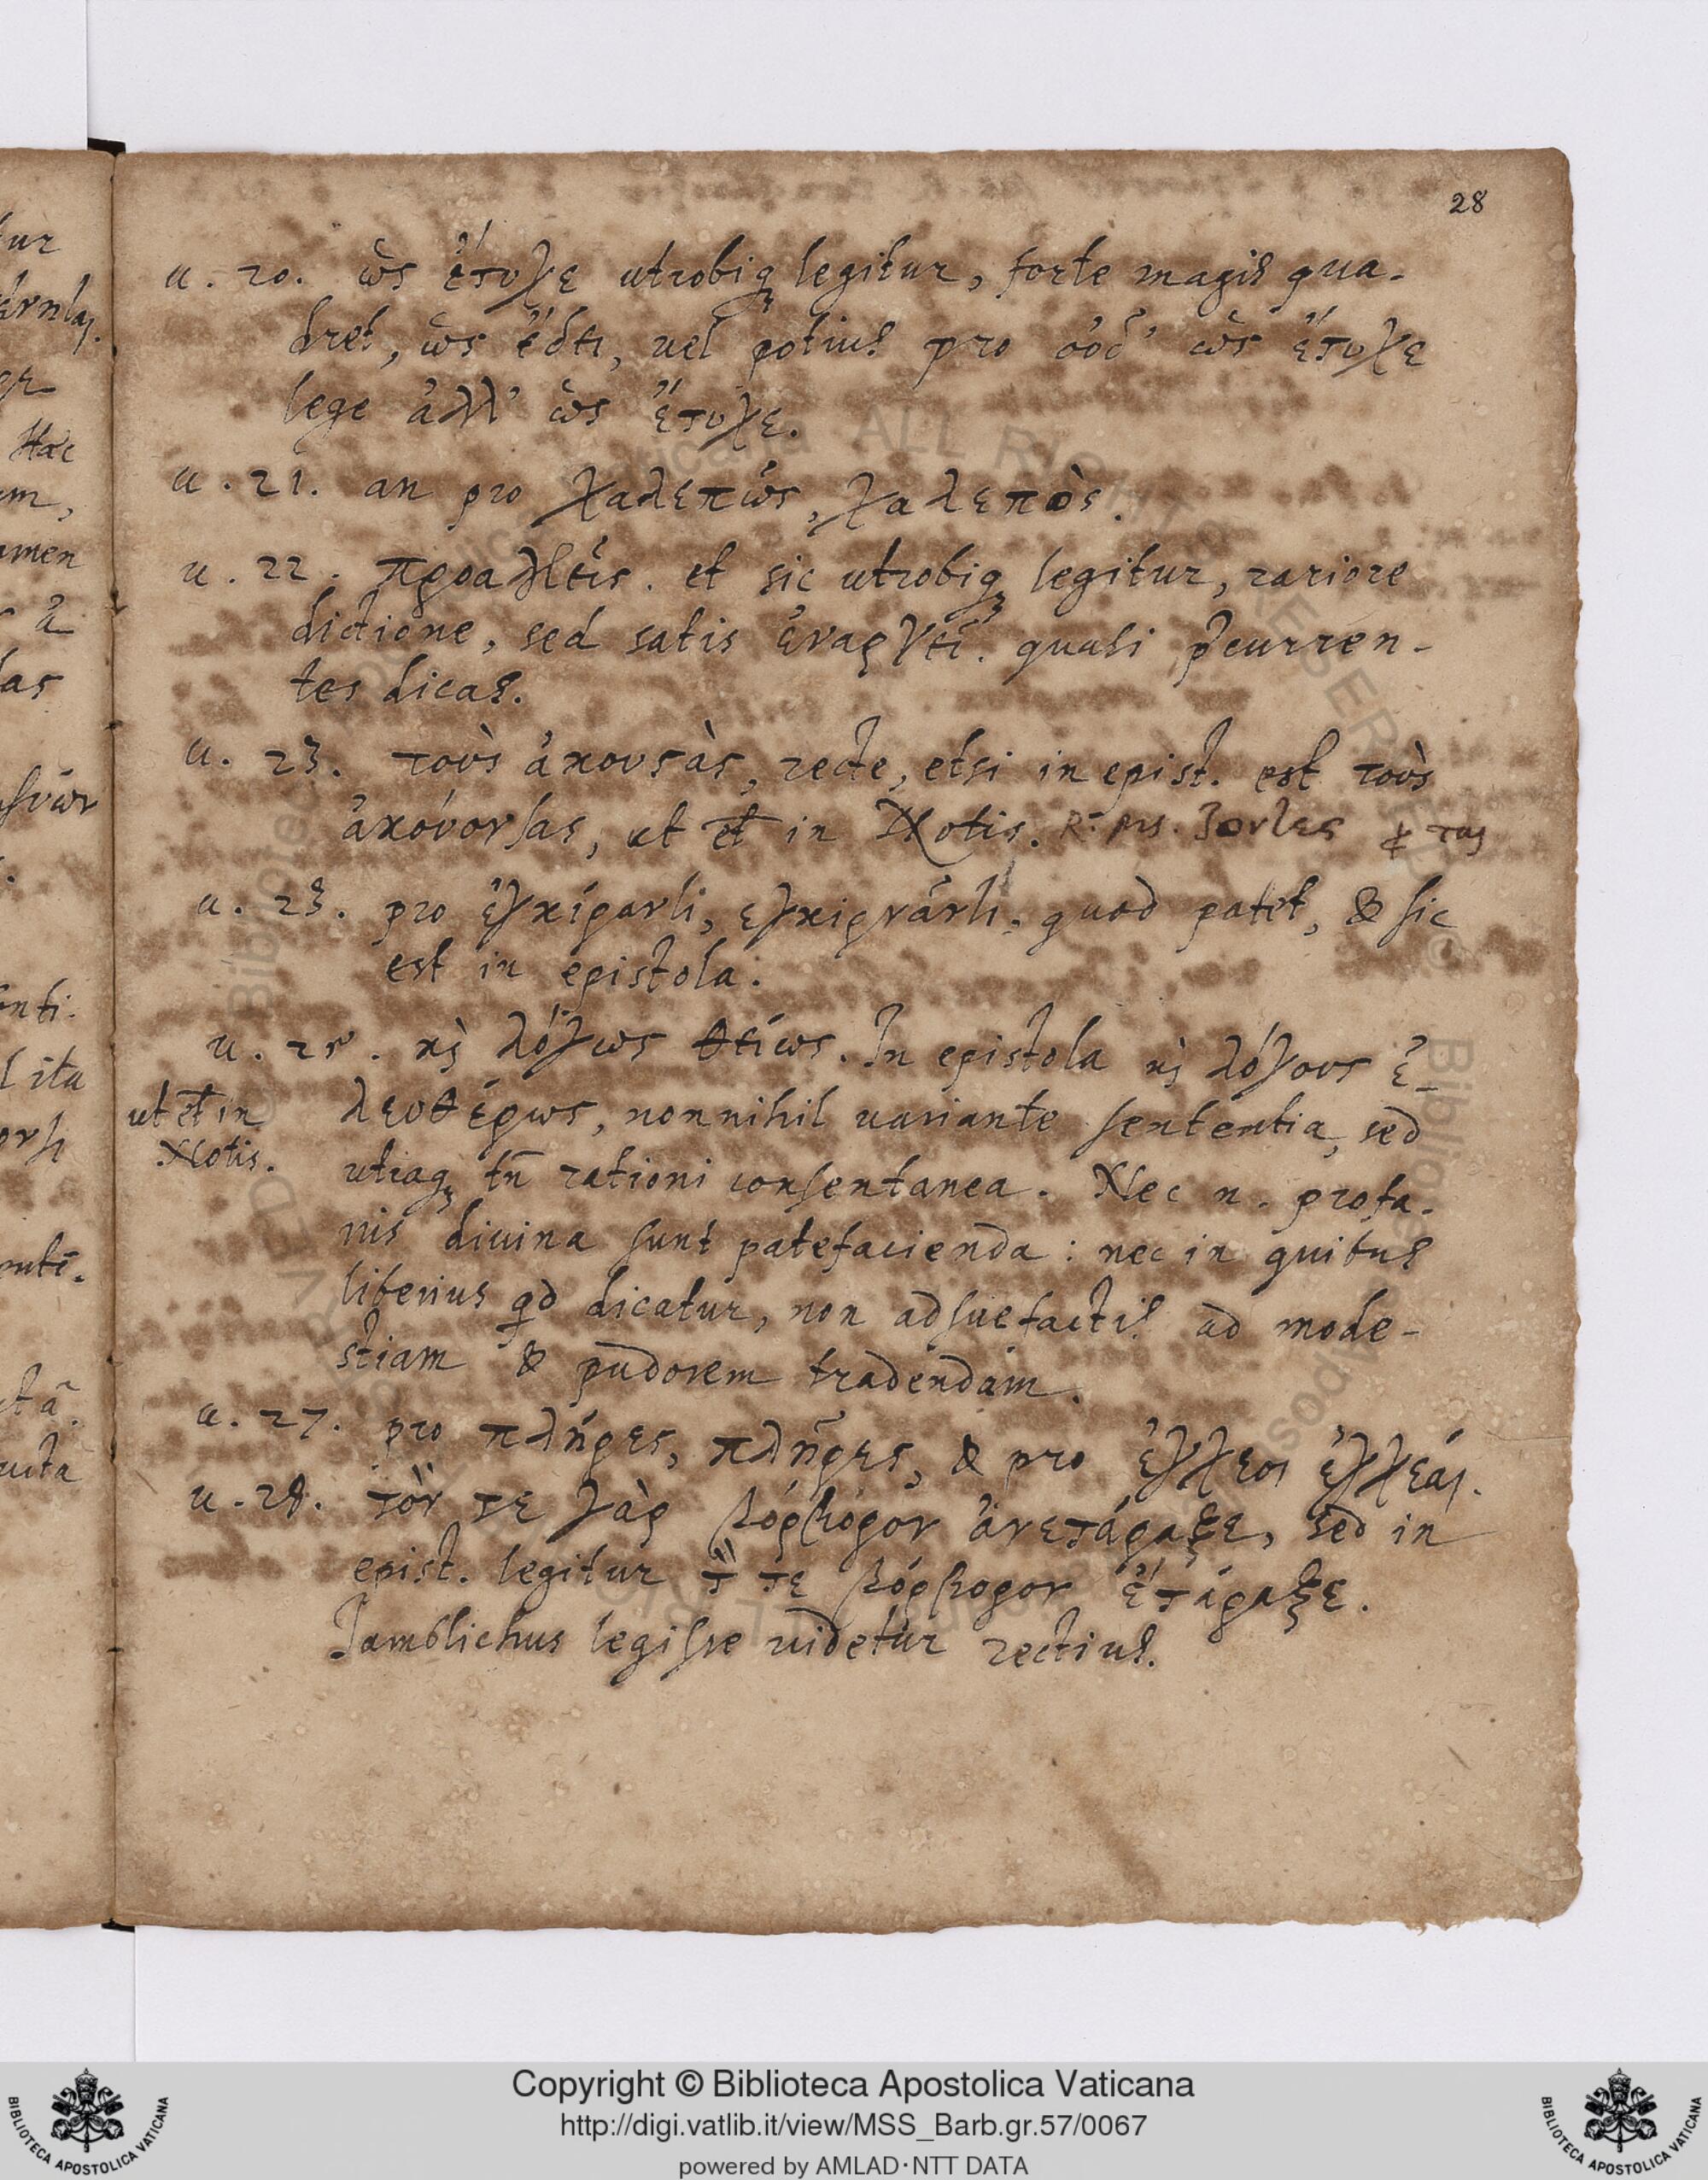 28
u. 20. ὡς ἔτυχε utrobiq legitur, forte magis qua-
dret, ὡς ἔδει, uel potius pro οὐδ' ὡς ἔτυχε
lege ἀλλ' ὡς ἔτυχε.
u. 21. an pro χαλεπῶς, χαλεπὸς.
u. 22. et sic utrobiq legitur, rariore
dictione, sed satis ἐναργεῖ. quasi pcurren-
tes dicas.
u. 23. τοὺς ἀκουσὰς, recte, etsi in epist. est τοὺς
ἀκούοντας, ut et in Notis.
u. 23. pro ἐγκίραντι, ἐγκιρνάντι, quod patet, & sic
est in epistola.
κὶ λόγως θείως. In epistola κὶ λόγους ἐ-
ut et in
Notis.
λευθέρως, nonnihil uariante sententia, sed
utiaq tn rationi consentanea. Nec n. profa-
nis diuina sunt patefacienda: nec in quibus
liberius qd dicatur, non adsuefactis ad mode-
stiam & pudorem tradendam.
u. 27. pro πλήρες, πλῆρες, & pro ἔγχεοι ἐγχέαι.
u. 28. τόν τε γὰρ βόρβορον ἀνετάραξε, sed in
epist. legitur τε βόρβορον ἐτάραξε.
Iamblichus legisse uidetur rectius.
Copyright © Biblioteca Apostolica Vaticana
http://digi.vatlib.it/view/MSS_Barb.gr.57/0067
powered by AMLAD·NTT DATA
BIBLIOTECA APOSTOLICA VATICANA
BIBLIOTECA APOSTOLICA VATICANA